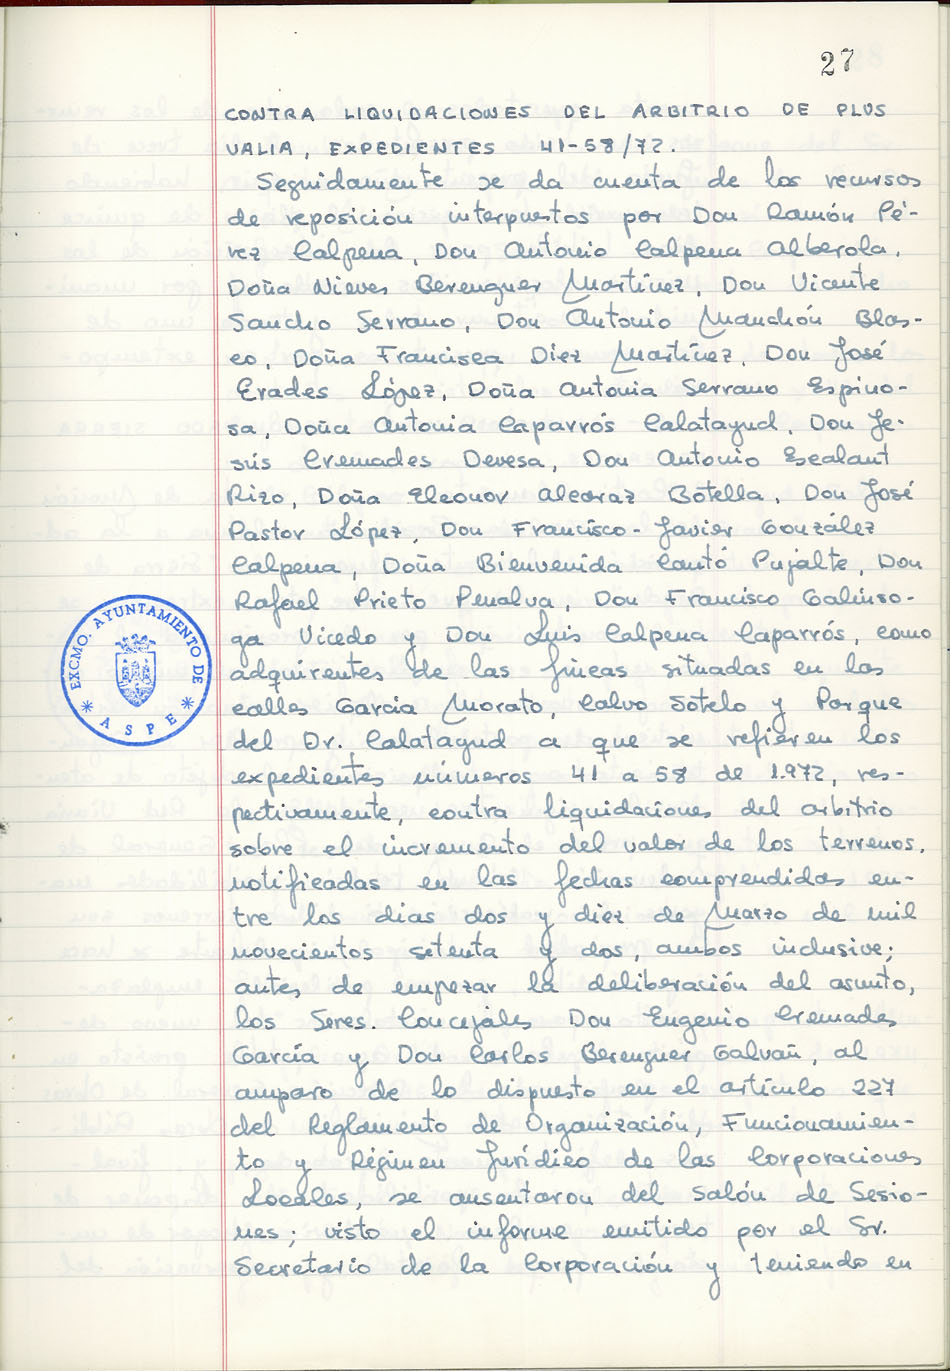 27
CONTRA LIQUIDACIONES DEL ARBITRIO DE PLUS
VALIA, EXPEDIENTES 41-58/72.
Seguidamente se da cuenta de los recursos
de reposición interpuestos por Don Ramón Pé-
rez Calpena, Don Antonio Calpena Alberola,
Doña Nieves Berenguer Martínez, Don Vicente
Sancho Serrano, Don Antonio Manchón Blas-
co, Doña Francisca Díez Martínez, Don José
Erades López, Doña Antonia Serrano Espino-
sa, Doña Antonia Caparrós Calatayud, Don Je-
sús Cremades Devesa, Don Antonio Escalant
Rizo, Doña Eleonor Alcaraz Botella, Don José
Pastor López, Don Francisco-Javier González
Calpena, Doña Bienvenida Cantó Pujalte, Don
Rafael Prieto Penalva, Don Francisco Galinso-
ga Vicedo y Don Luis Calpena Caparrós, como
adquirentes de las fincas situadas en las
calles García Morato, Calvo Sotelo y Parque
del Dr. Calatayud a que se refieren los
expedientes números 41 a 58 de 1.972, res-
pectivamente, contra liquidaciones del arbitrio
sobre el incremento del valor de los terrenos,
notificadas en las fechas comprendidas en-
tre los días dos y diez de Marzo de mil
novecientos setenta y dos, ambos inclusive;
antes de empezar la deliberación del asunto,
los Sres. Concejales Don Eugenio Cremades
García y Don Carlos Berenguer Galvañ, al
amparo de lo dispuesto en el artículo 227
del Reglamento de Organización, Funcionamien-
to y Régimen Jurídico de las Corporaciones
Locales, se ausentaron del Salón de Sesio-
nes; visto el informe emitido por el Sr.
Secretario de la Corporación y teniendo en
EXCMO. AYUNTAMIENTO DE
* ASPE *